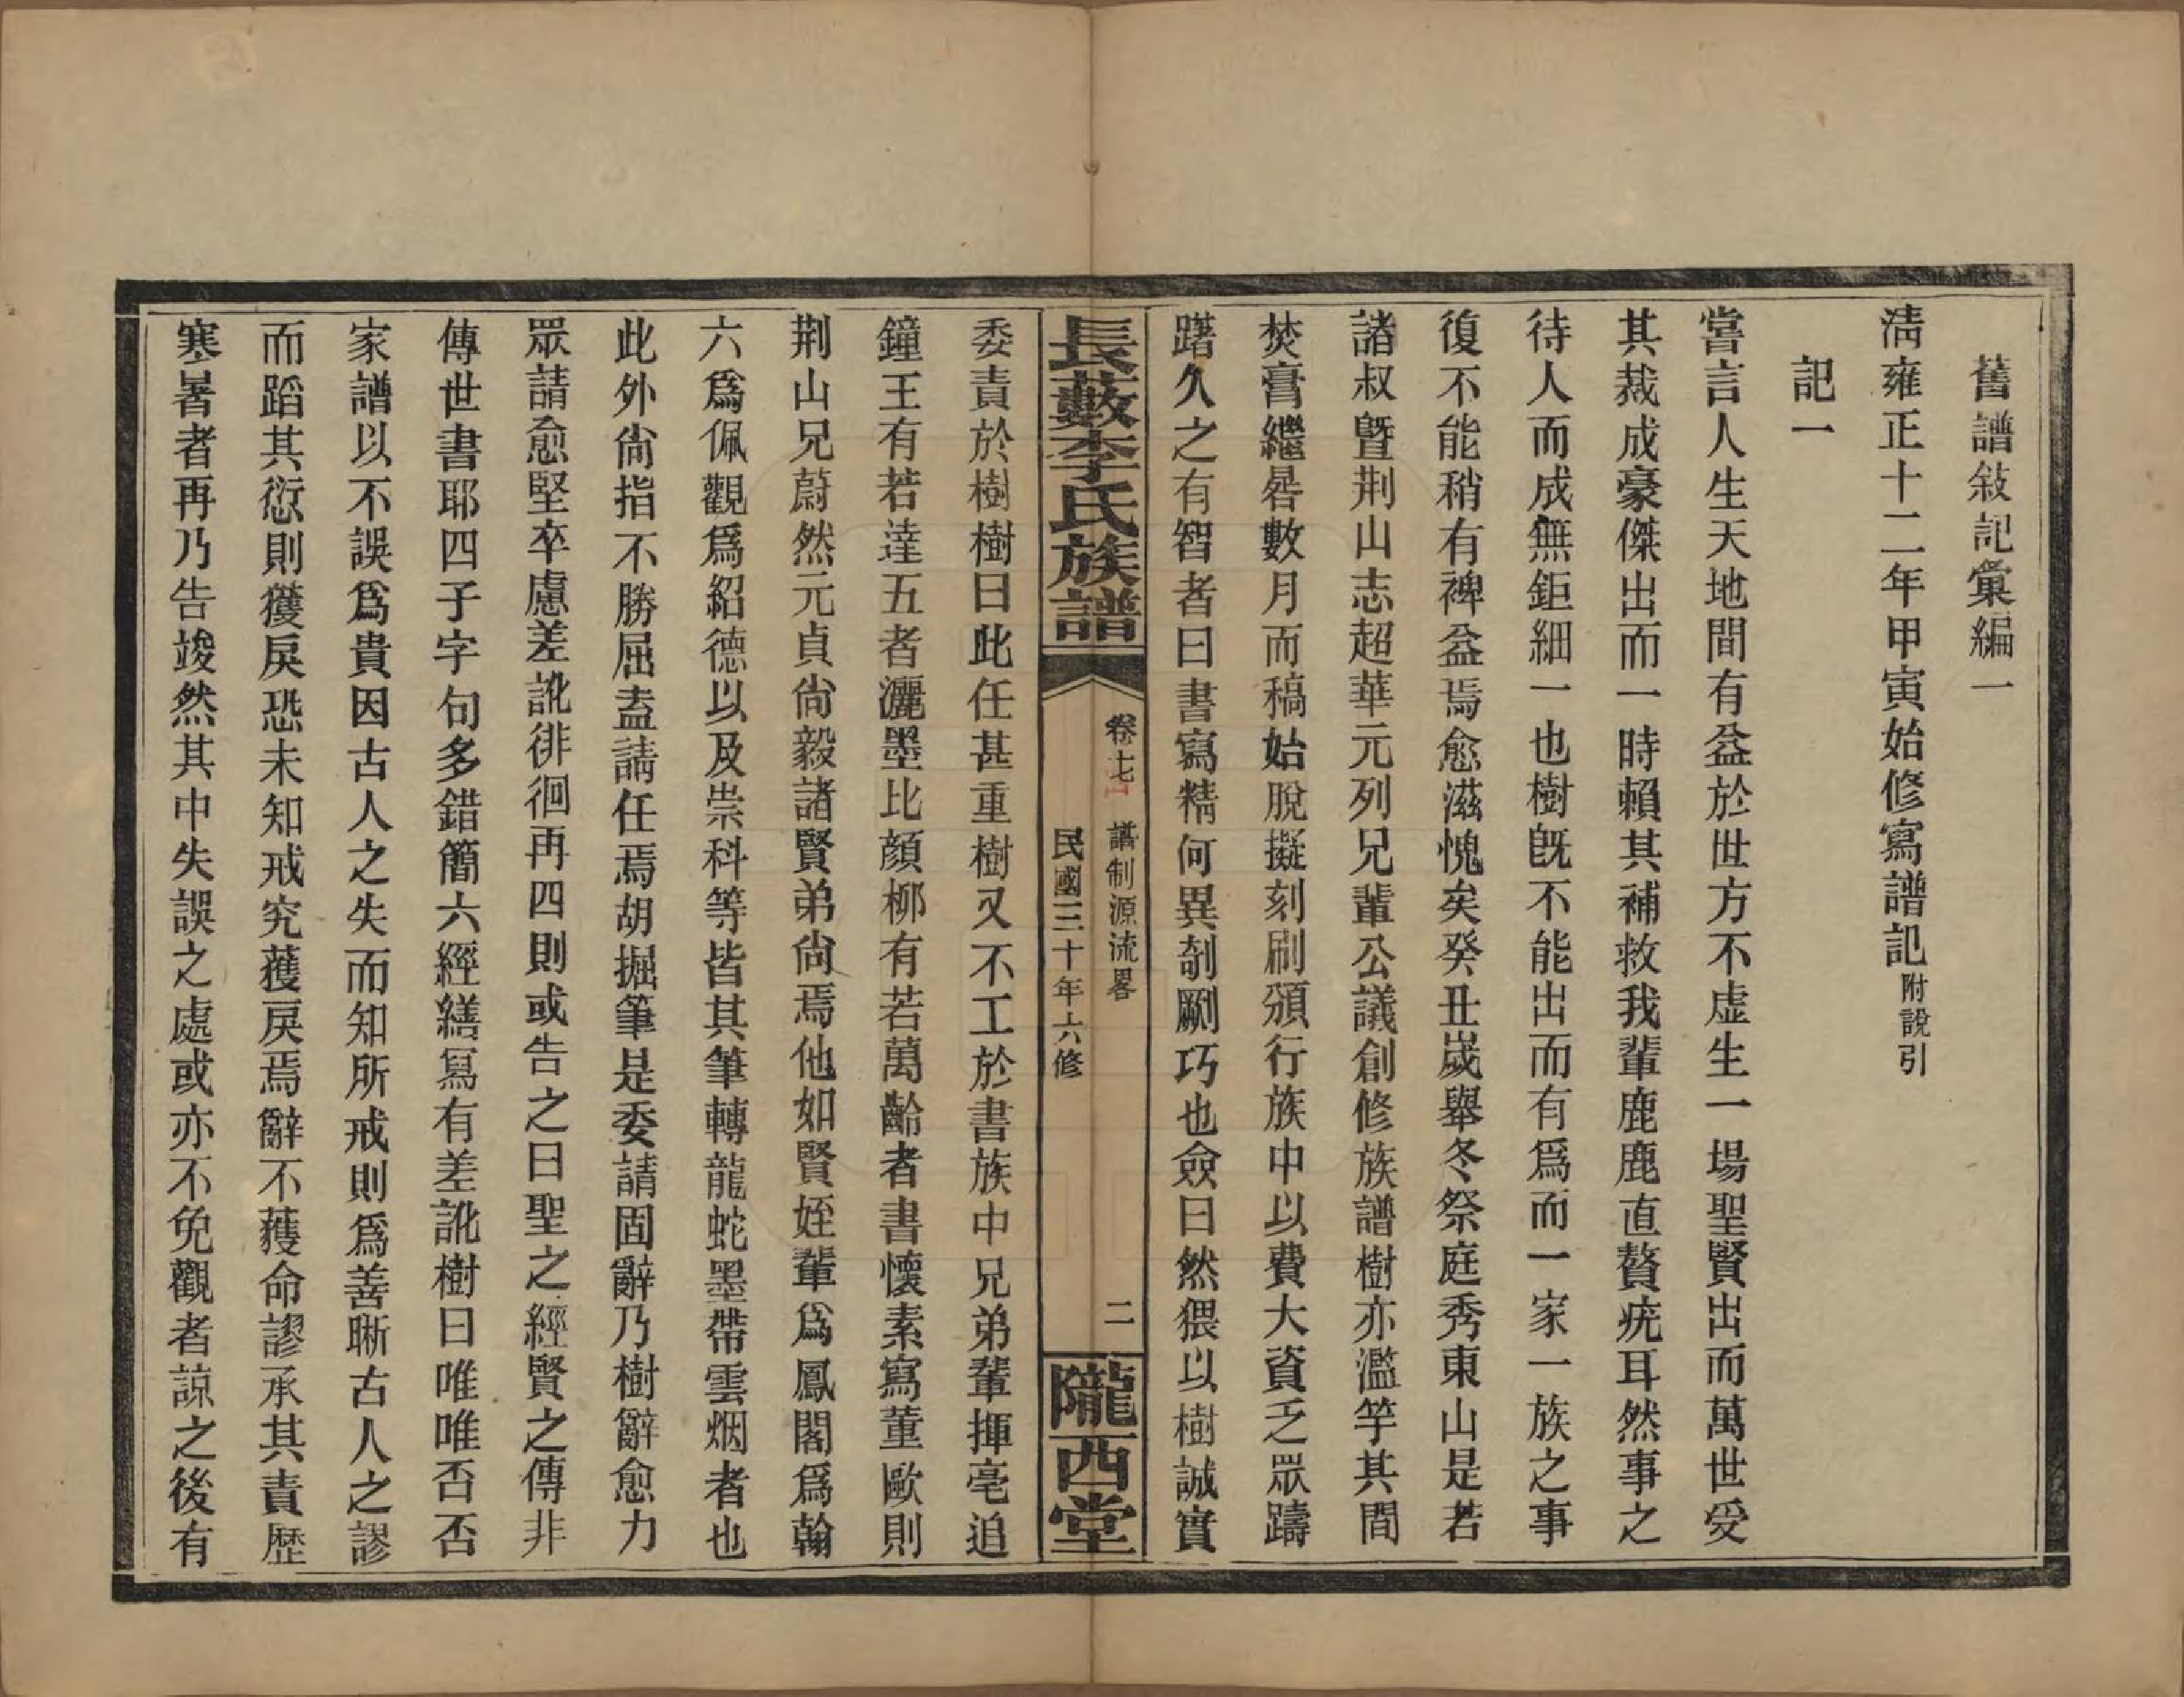 舊譜敍記彙編一
淸雍正十二年甲寅始修寫譜記附說引
記一
嘗言人生天地間有益於世方不虛生一場聖賢出而萬世受
其裁成豪傑出而一時賴其補救我輩鹿鹿直贅疣耳然事之
待人而成無鉅細一也樹旣不能出而有爲而一家一族之事
復不能稍有裨益焉愈滋愧矣癸丑嵗舉冬祭庭秀東山是若
諸叔曁荆山志超華元列兄輩公議創修族譜樹亦濫竽其間
焚膏繼晷數月而稿始脫擬刻刷頒行族中以費大資乏眾躊
躇久之有智者曰書寫精何異剞劂巧也僉曰然猥以樹誠實
長藪李氏族譜
卷七
譜制源流畧
二
民國三十年六修
隴西堂
委責於樹樹曰此任甚重樹又不工於書族中兄弟輩揮毫追
鐘王有若達五者灑墨比顏柳有若萬齡者書懷素寫董歐則
荆山兄蔚然元貞尙毅諸賢弟尙焉他如賢姪輩爲鳳閣爲翰
六爲佩觀爲紹德以及崇科等皆其筆轉龍蛇墨帶雲烟者也
此外尙指不勝屈盍請任焉胡掘筆是委請固辭乃樹辭愈力
眾請愈堅卒慮差訛徘徊再四則或告之曰聖之經賢之傳非
傳世書耶四子字句多錯簡六經繕寫有差訛樹曰唯唯否否
家譜以不誤爲貴因古人之失而知所戒則爲善晰古人之謬
而蹈其愆則獲戾恐未知戒究獲戾焉辭不獲命謬承其責歷
寒暑者再乃告竣然其中失誤之處或亦不免觀者諒之後有